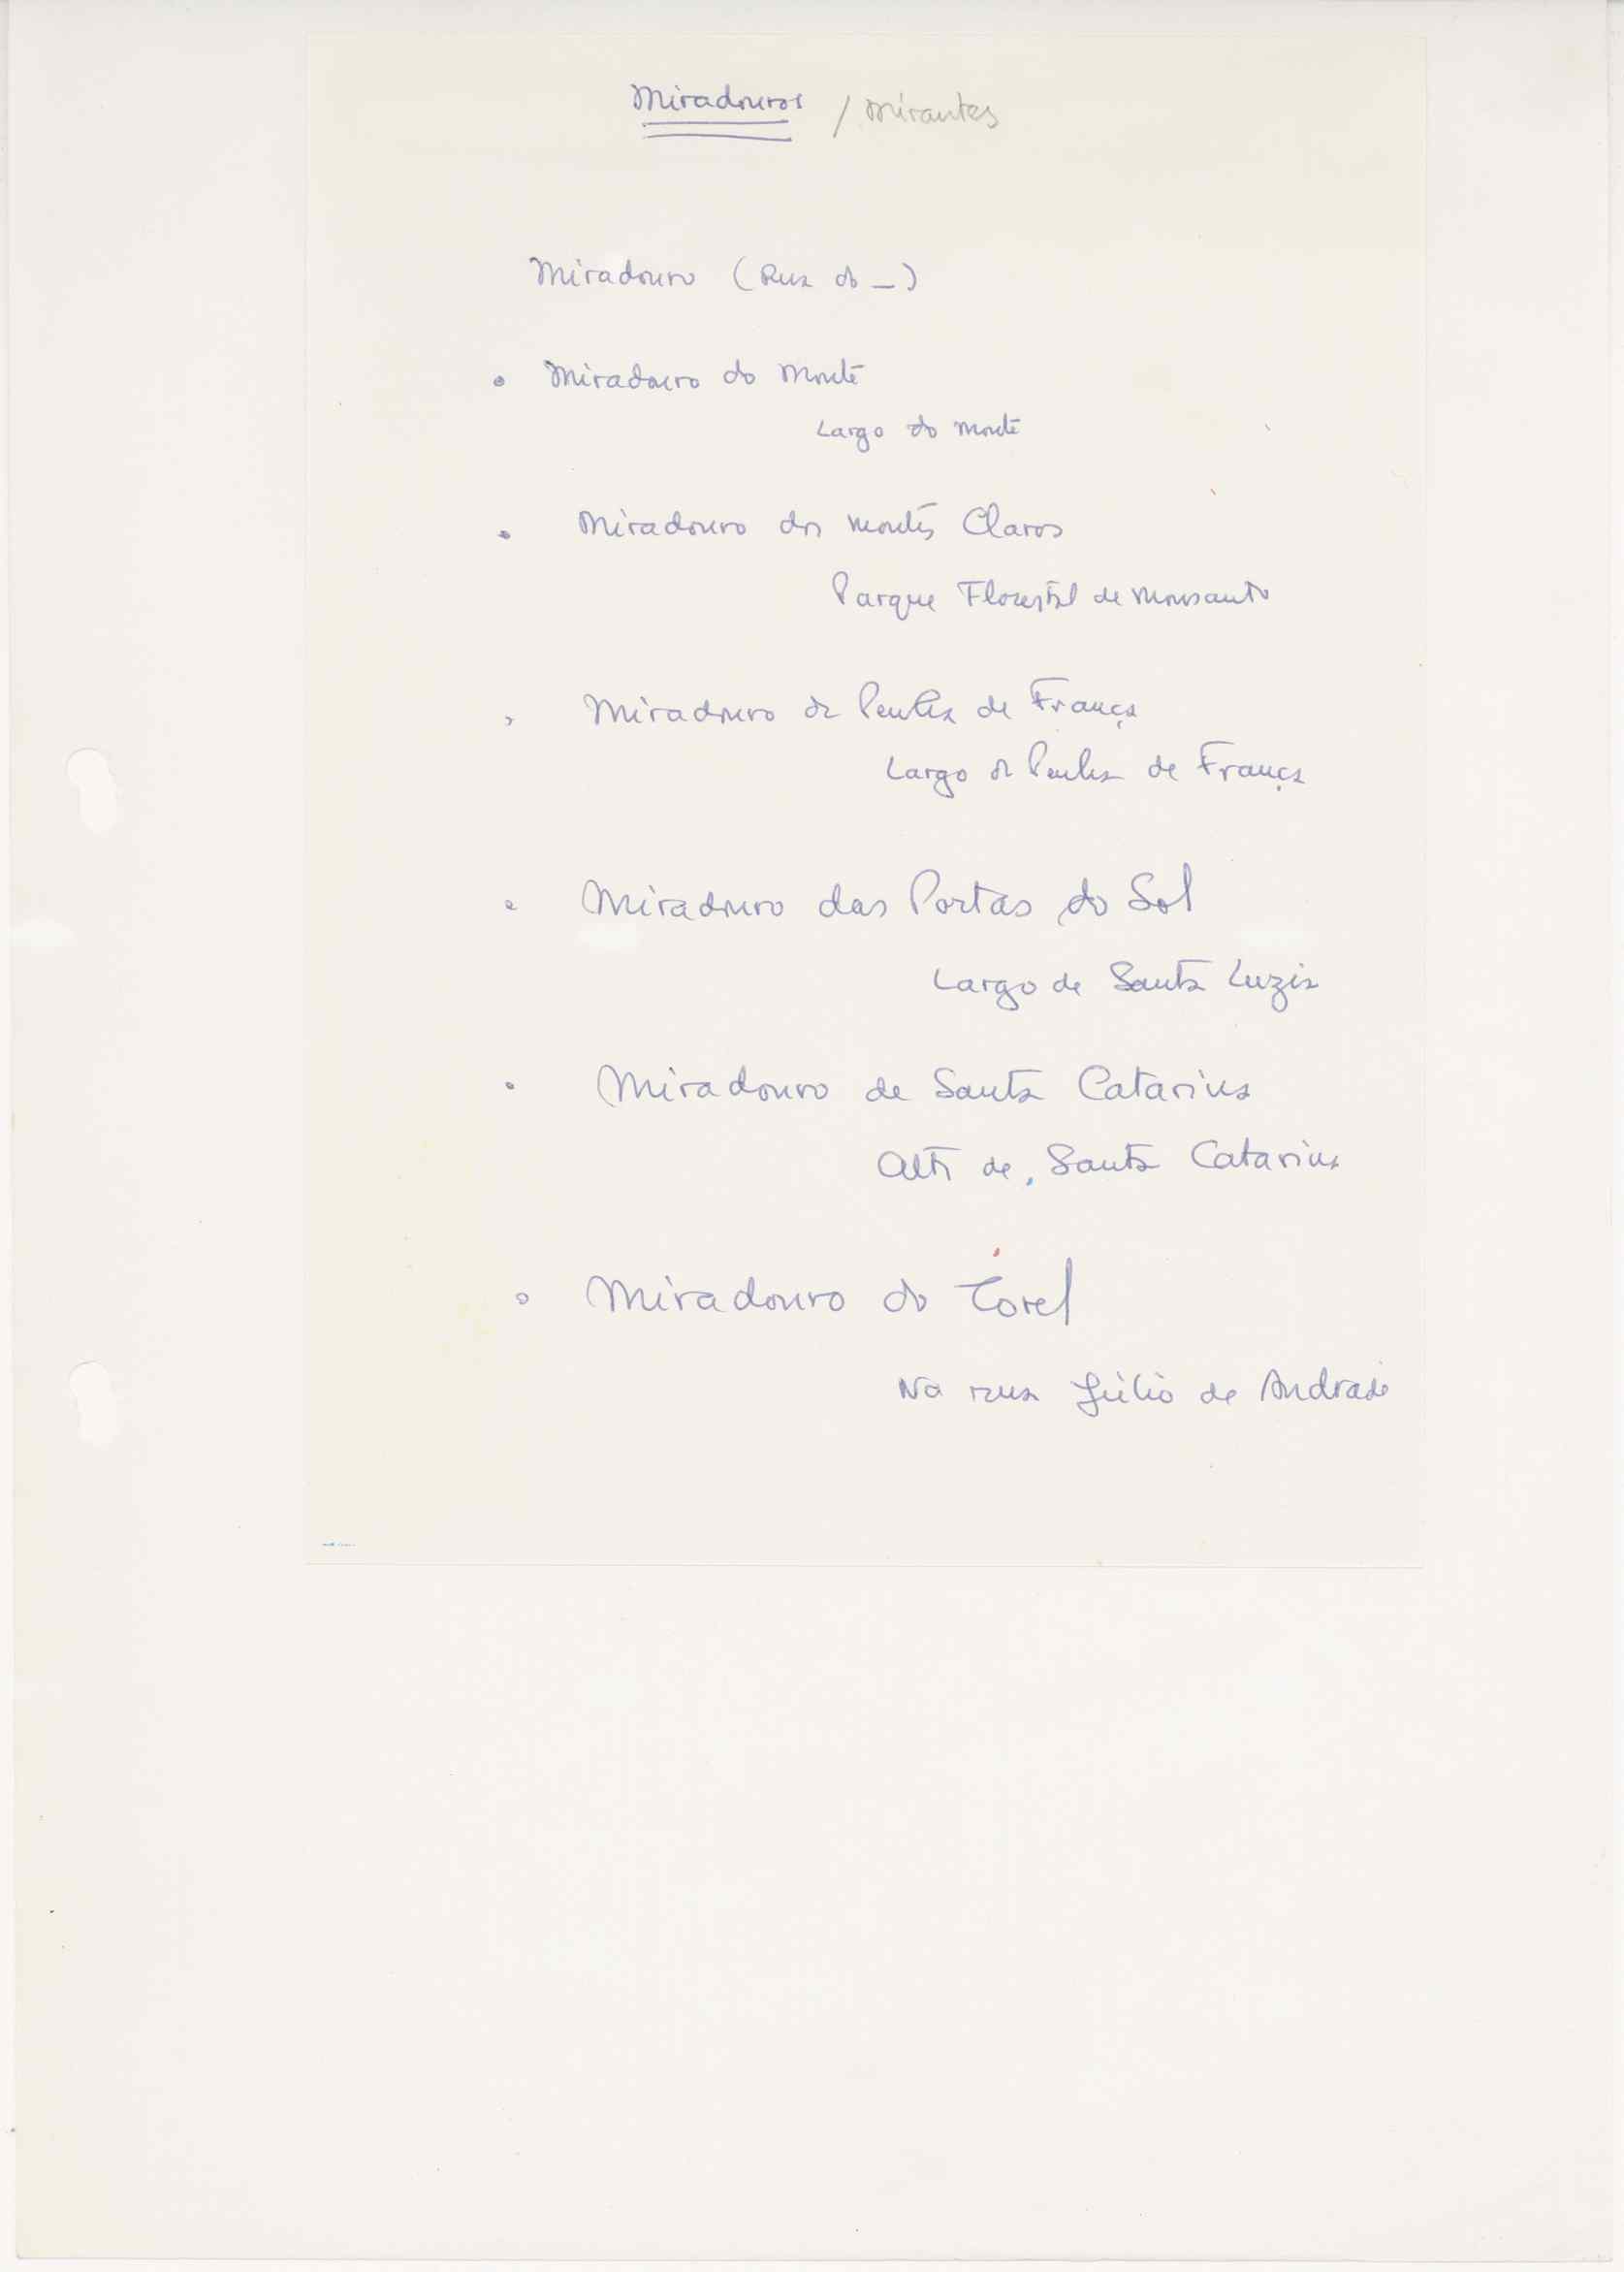 Miradouros / Mirantes
Miradouro (Rua do _)
Miradouro do Monte
Largo do Monte
Miradouro dos Montes Claros
Parque Florestal de Monsanto
Miradouro da Penha de França
Largo da Penha de França
Miradouro das Portas do Sol
Largo de Santa Luzia
Miradouro de Santa Catarina
Alto de Santa Catarina
Miradouro do Torel
Na rua Júlio de Andrade